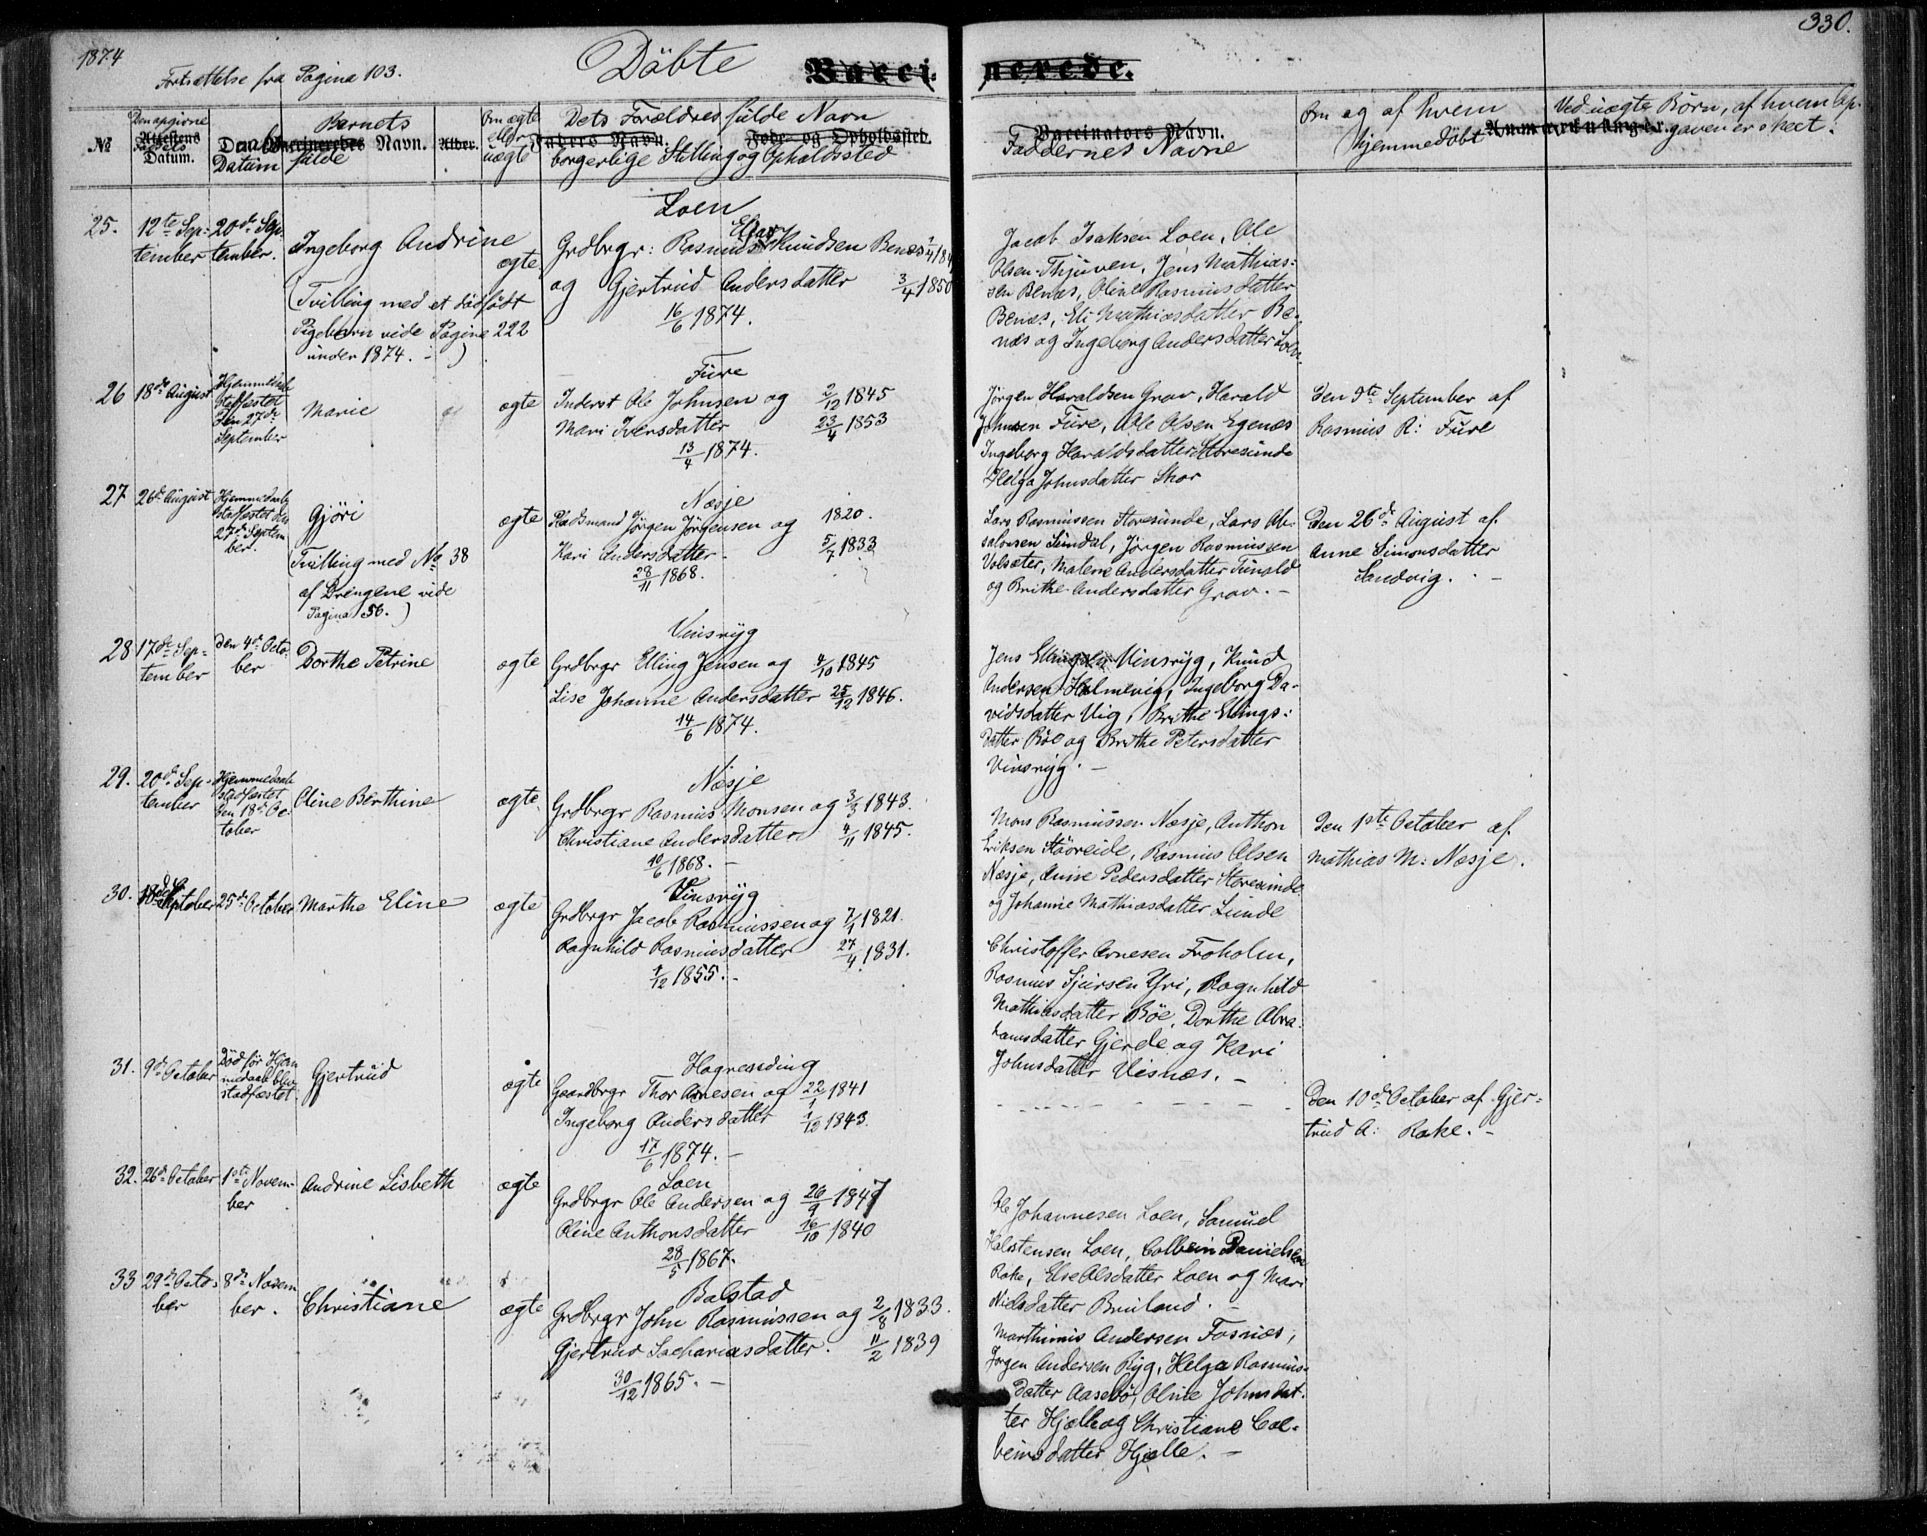 1874
Fortsættelse fra Pagina 103.
Döbte
Vacci-
nerede.
330.
№
Den opgivne
Attestens
Datum.
Daabs
Datum
Barnets
Vaccineredes Navn.
fulde
Alder.
Om ægte
eller
uægte
Dets Forældres fulde Navn
Faders Navn. Føde- og Opholdssted.
borgerlige Stilling og Opholdssted
Vaccinators Navn.
Faddernes Navne
Om og af hvem
hjemmedöbt
Anmærkninger.
Ved uægte Börn, af hvem Op-
gaven er skeet.
25.
12te Sep-
tember
20de Sep-
tember.
Ingeborg Andrine
(Tvilling med et dödfödt
Pigebarn vide Pagina 222
under 1874. - )
ægte
Loen
Grdbrgr: Rasmus Knudsen Benæs
og Gjertrud Andersdatter 3/4 1850
16/6 1874.
Jacob Isaksen Loen, Ole
Olsen Thjuven, Jens Mathias-
sen Benæs, Oline Rasmusdatter
Benæs, Eli Mathiasdatter Be-
næs og Ingeborg Andersdatter Loen
26
18de August
Hjemmedaab
stadfæstet
den 27de
September
Marie
ægte
Fure
Inderst Ole Johnsen og 2/12 1845
Mari Iversdatter 23/4 1853
13/4 1874.
Jörgen Haraldsen Grav, Harald
Johnsen Fure, Ole Olsen Egenæs
Ingeborg Haraldsdatter Storesunde
Helga Johnsdatter Skor
Den 9te September af
Rasmus R: Fure
27
26de August
Hjemmedaab
stadfæstet den
27de Septem-
ber.
Gjöri
(Tvilling med No 38
af Drengene vide
Pagina 56.)
ægte
Næsje
Pladsmand Jörgen Jörgensen og 1820.
Kari Andersdatter 5/7 1833
28/11 1868.
Lars Rasmussen Storesunde, Lars Ab-
salonsen Sundal, Jörgen Rasmussen
Volsæter, Malene Andersdatter Tunold
og Brithe Andersdatter Grav. -
Den 26de August af
Anne Simonsdatter
Sandvig. -
28
17de Sep-
tember
den 4de Octo-
ber
Dorthe Petrine
ægte
Vinsryg
Grdbrgr Elling Jensen og 4/10 1845
Lise Johanne Andersdatter 25/12 1846.
14/6 1874.
Jens Vinsryg, Knud
Andersen Holmevig, Ingeborg Da-
vidsdatter Vig, Brithe Ellings-
datter Böe og Brithe Petersdatter
Vinsryg. -
29.
20de Sep-
tember
Hjemmedaab
stadfæstet
den 18de Oc-
tober
Oline Berthine
ægte
Næsje
Grdbrgr Rasmus Monsen og 3/3 1843.
Christiane Andersdatter 4/11 1845.
10/6 1868. -
Mons Rasmussen Næsje, Anthon
Eriksen Støoreide, Rasmus Olsen
Næsje, Anne Pedersdatter Storesunde
og Johanne Mathiasdatter Lunde
Den 1ste October af
Mathias M: Næsje.
30.
October
25de October
Marthe Eline
ægte
Vinsryg
Grdbrgr Jacob Rasmussen og 7/1 1821.
Ragnhild Rasmusdatter 27/4 1831.
1/12 1855. -
Christoffer Arnesen Froholm,
Rasmus Sjursen Yri, Ragnhild
Mathiasdatter Böe, Dorthe Abra-
hamsdatter Gjerde og Kari
Johnsdatter Visnæs. -
31.
9de October
Död för Hjem-
medaab blev
stadfæstet
Gjertrud
ægte
Hogrending
Gaardbrgr Thor Arnesen og 22/1 1841
Ingeborg Andersdatter 1/12 1843.
17/6 1874. -
Den 10de October af Gjer-
trud A: Rake. -
32.
26de October
1ste Novem-
ber
Andrine Lisbeth
ægte
Loen
Grdbrgr Ole Andersen og 26/9 1847
Oline Anthonsdatter 16/10 1840
28/5 1867.
Ole Johannesen Loen, Samuel
Halstensen Loen, Colbein Danielsen
Rake, Else Olsdatter Loen og Mari
Nielsdatter Bruland. -
33
29de Octo-
ber
8de Novem-
ber.
Christiane
ægte
Balstad
Grdbrgr John Rasmussen og 2/8 1833.
Gjertrud Sachariasdatter. 11/2 1839
30/12 1865. -
Marthinus Andersen Fosnæs,
Jörgen Andersen Ryg, Helga Rasmus-
datter Aasebö, Oline Johnsdat-
ter Hjelle og Christiane Col-
beinsdatter Hjelle. -